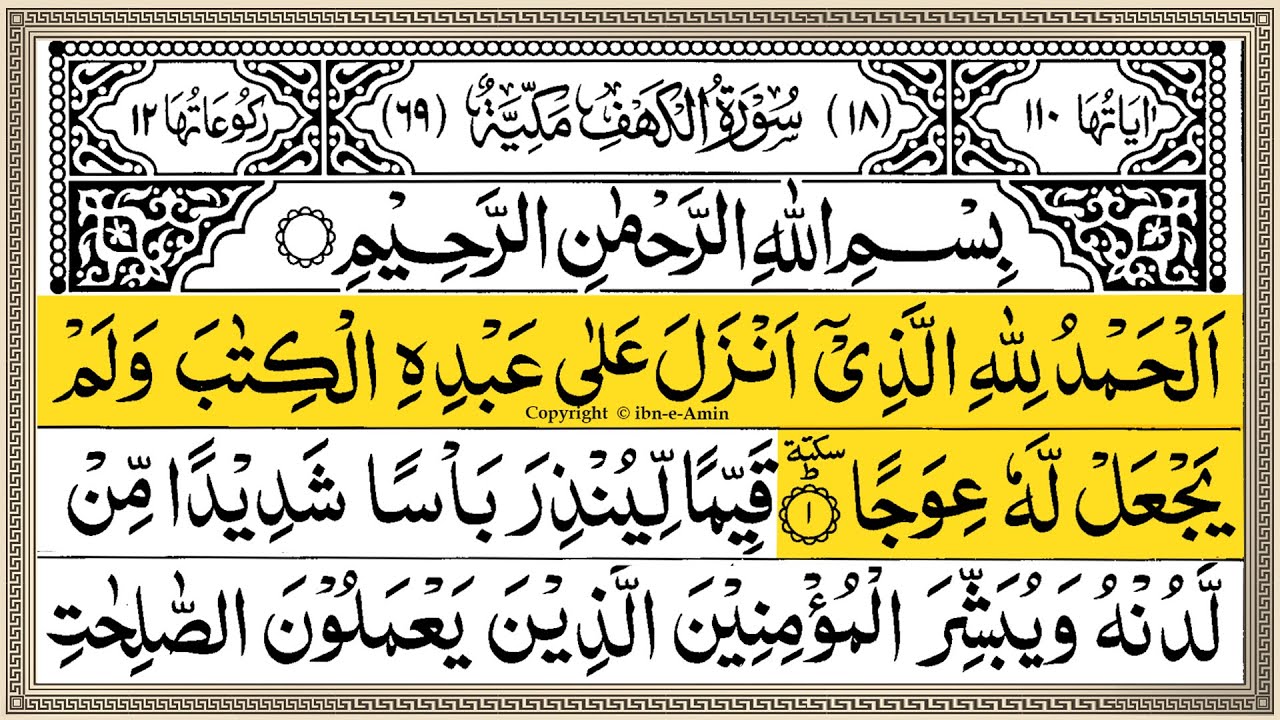 اٰیَاتُهَا ۱۱۰
(۱۸) سُوْرَةُ الْكَهْفِ مَكِّیَّةٌ (۶۹)
رُكُوْعَاتُهَا ۱۲
بِسْمِ اللّٰهِ الرَّحْمٰنِ الرَّحِیْمِ
اَلْحَمْدُ لِلّٰهِ الَّذِیْۤ اَنْزَلَ عَلٰى عَبْدِهِ الْكِتٰبَ وَلَمْ
Copyright © ibn-e-Amin
یَجْعَلْ لَّهٗ عِوَجًا ؕ سكتة ۱ قَیِّمًا لِّیُنْذِرَ بَاْسًا شَدِیْدًا مِّنْ
لَّدُنْهُ وَیُبَشِّرَ الْمُؤْمِنِیْنَ الَّذِیْنَ یَعْمَلُوْنَ الصّٰلِحٰتِ